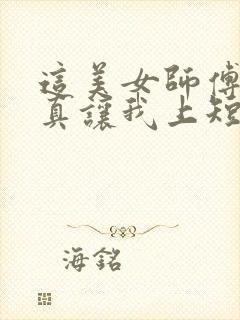 這美女師傅
真讓我上短
海銘